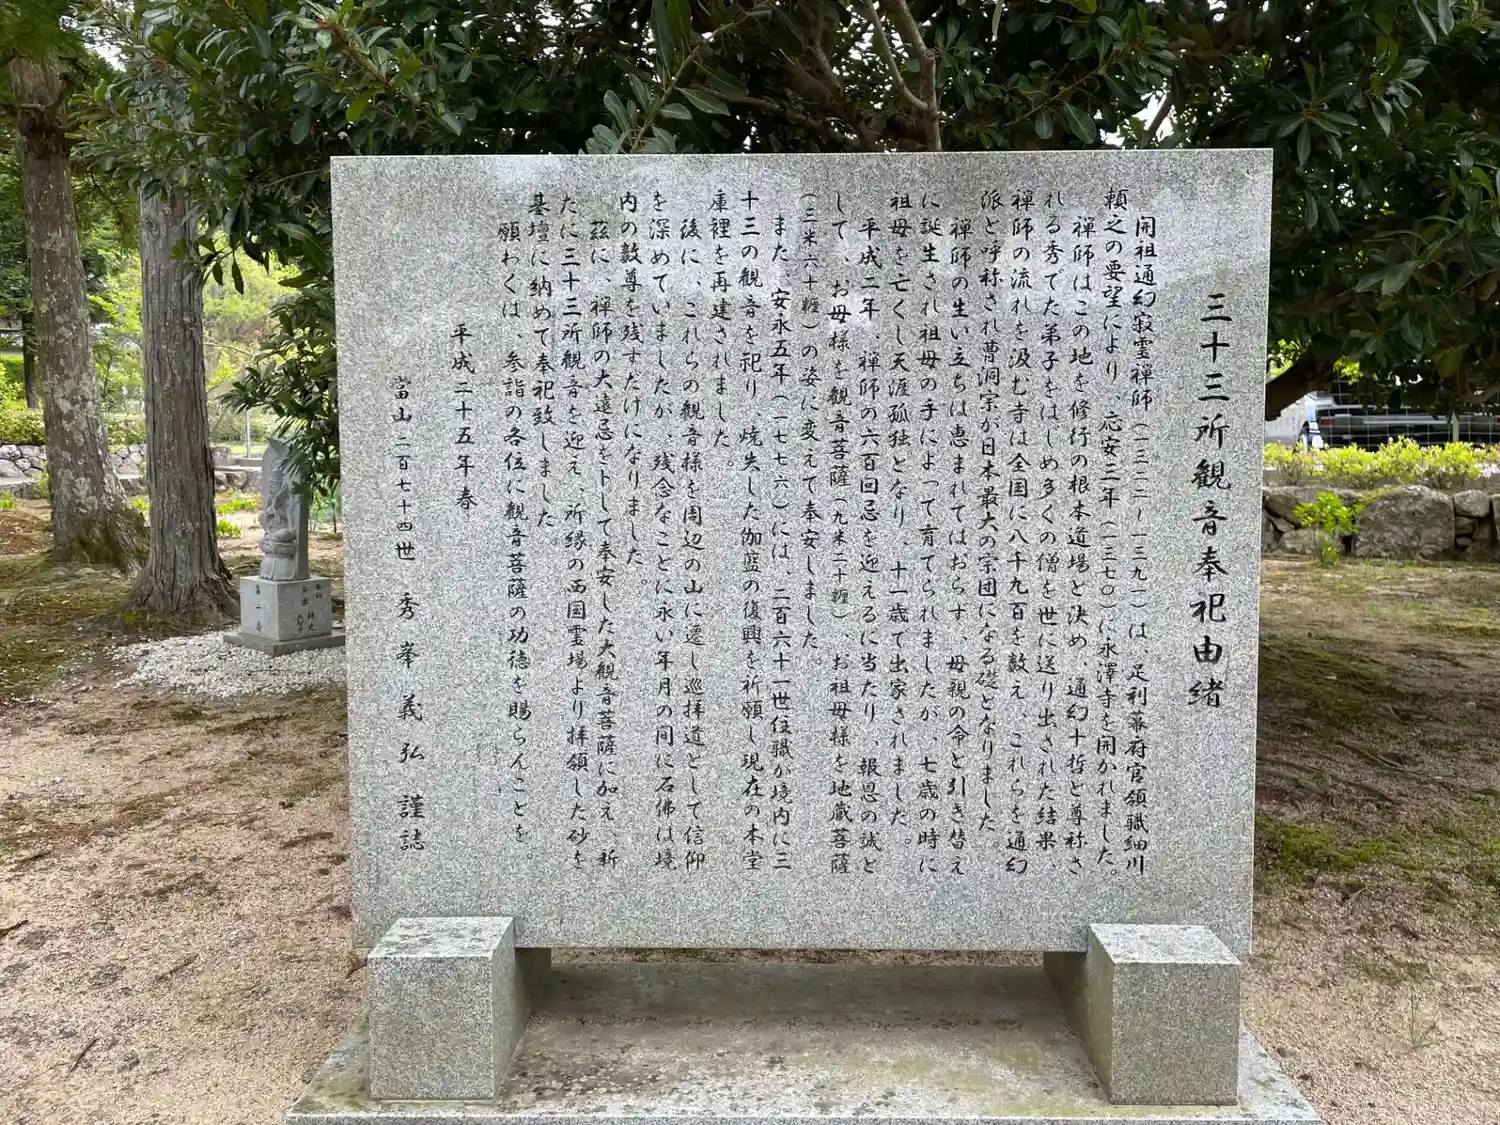 三十三所観音奉祀由緒
開祖通幻寂霊禅師（一三二二～一三九一）は、足利幕府官領職細川
頼之の要望により、応安三年（一三七〇）に永澤寺を開かれました。
禅師はこの地を修行の根本道場と決め、通幻十哲と尊称さ
れる秀でた弟子をはじめ多くの僧を世に送り出された結果、
禅師の流れを汲む寺は全国に八千九百を数え、これらを通幻
派と呼称され曹洞宗が日本最大の宗団になる礎となりました。
禅師の生い立ちは恵まれてはおらず、母親の命と引き替え
に誕生され祖母の手によって育てられましたが、七歳の時に
祖母を亡くし天涯孤独となり、十一歳で出家されました。
平成二年、禅師の六百回忌を迎えるに当たり、報恩の誠と
して、お母様を観音菩薩（九米二十糎）、お祖母様を地蔵菩薩
（三米六十糎）の姿に変えて奉安しました。
また、安永五年（一七七六）には、二百六十一世住職が境内に三
十三の観音を祀り、焼失した伽藍の復興を祈願し現在の本堂
庫裡を再建されました。
後に、これらの観音様を周辺の山に遷し巡拝道として信仰
を深めていましたが、残念なことに永い年月の間に石佛は境
内の数尊を残すだけになりました。
茲に、禅師の大遠忌をトして奉安した大観音菩薩に加え、新
たに三十三所観音を迎え、所縁の西国霊場より拝領した砂を
基壇に納めて奉祀致しました。
願わくは、参詣の各位に観音菩薩の功徳を賜らんことを。
平成二十五年春
當山二百七十四世 秀峯義弘 謹誌
第一番